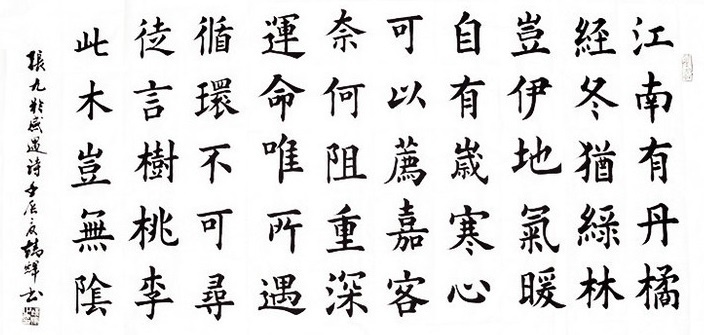 江南有丹橘
經冬猶綠林
豈伊地氣暖
自有歲寒心
可以薦嘉客
奈何阻重深
運命唯所遇
循環不可尋
徒言樹桃李
此木豈無陰
張九齡感遇詩壬辰夏瑞輝书